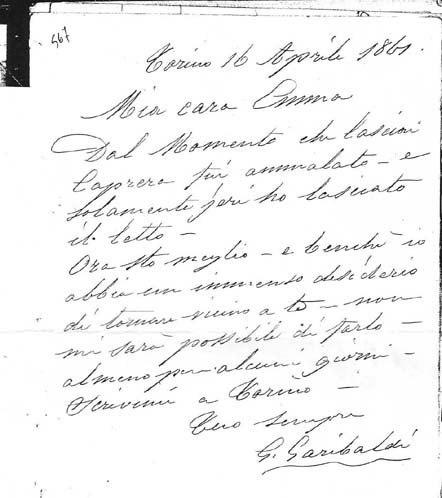 567
Torino 16 Aprile 1861.
Mia cara Emma
Dal Momento che lasciai
Caprera fui ammalato – e
solamente jeri ho lasciato
il letto –
Ora sto meglio – e benchè io
abbia un immenso desiderio
di tornare vicino a te – non
mi sarà possibile di farlo –
almeno per alcuni giorni –
Scrivimi a Torino –
Tuo sempre
G. Garibaldi